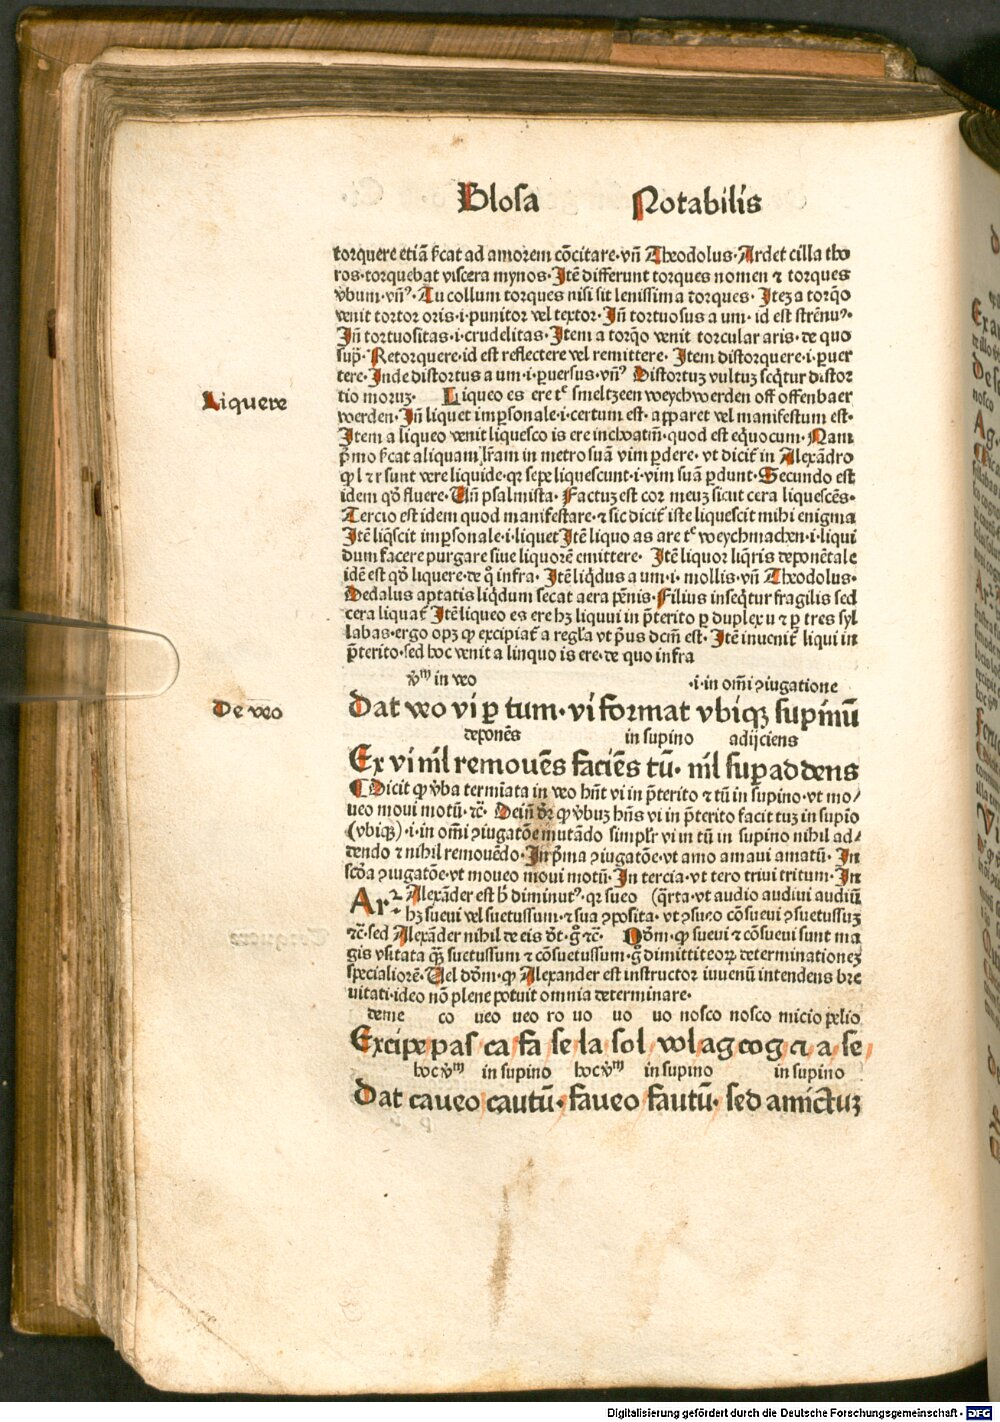 Glosa Notabilis
torquere etiā ſſcat ad amorem cōcitare·vñ Theodolus·Ardet cilla tho
ros·torquebat viscera mynos·Itē differunt torques nomen ⁊ torques
v̄bum·vñꝰ·Tu collum torques nisi sit lenissima torques· Iteȝ a torq̄o
venit tortor oris·i·punitor vel textor·Iñ tortuosus a um·id est strēnuꝰ·
Iñ tortuositas·i·crudelitas·Item a torq̄o venit torcular aris·de quo
sup̄·Retorquere·id est reflectere vel remittere· Item distorquere·i·ꝑuer
tere·Inde distortus a um·i·ꝑuersus·vñꝰ Distortuȝ vultuȝ seq̄tur distor
tio moruȝ· Liqueo es ere tᵉ smeltzeen weychwerden off offenbaer
Liquere
werden·Iñ liquet imꝑsonale·i·certum est·apparet vel manifestum est·
Item a liqueo venit liquesco is ere inchoatiū·quod est eq̄uocum·Nam
p̄mo ſſcat aliquam lr̄am in metro suā vim ꝑdere·vt dicit̄ in Alexādro
ꝙ l ⁊ r sunt vere liquide·qꝛ sepe liquescunt·i·vim suā ꝑdunt·Secundo est
idem qď fluere·Uñ psalmista·Factuȝ est cor meuȝ sicut cera liquescēs·
Tercio est idem quod manifestare·⁊ sic dicit̄ iste liquescit mihi enigma
Itē liq̄scit imꝑsonale·i·liquet Itē liquo as are tᵉ weychmachen·i·liqui
dum facere purgare siue liquorē emittere· Itē liquor liq̄ris deponētale
idē est qď liquere·de q̊ infra·Itē liq̄dus a um·i·mollis·vñ Theodolus·
Dedalus aptatis liq̄dum secat aera pēnis·Filius inseq̄tur fragilis sed
cera liquat̄ Itē liqueo es ere hȝ liqui in p̄terito ꝑ duplex u ⁊ ꝑ tres syl
labas·ergo opȝ ꝙ excipiat̄ a regl̄a vt pᵒus dcm̄ est·Itē inuenit̄ liqui in
p̄terito·sed hoc venit a linquo is ere·de quo infra
v̄ᵐ in veo ·i·in om̄i ꝯiugatione
De veo
Dat veo vi ꝑ tum·vi format vbiqȝ supinū
deponēs in supino adijciens
Ex vi nil remouēs faciēs tū·nil suꝑaddens
¶ Dicit ꝙ v̄ba termīata in veo hn̄t vi in p̄terito ⁊ tū in supino·vt mo/
ueo moui motū·⁊c̄· Deīn dr̄ ꝙ v̄buȝ hn̄s vi in p̄terito facit tuȝ in supīo
(vbiqȝ)·i·in om̄i ꝯiugatōe mutādo simplr̄ vi in tū in supino nihil ad/
dendo ⁊ nihil remouēdo·In p̄ma ꝯiugatōe·vt amo amaui amatū· In
scďa ꝯiugatōe·vt moueo moui motū·In tercia·vt tero triui tritum·In
Arꝛ Alexāder est hᵒ diminutꝰ·qꝛ sueo (q̄rta·vt audio audiui audiū
hȝ sueui vel suetussum·⁊ sua ꝯposita·vt ꝯsueo cōsueui ꝯsuetussuȝ
⁊c̄·sed Alexāder nihil de eis d̄t·g̊ ⁊c̄· Dōm·ꝙ sueui ⁊ cōsueui sunt ma
gis vsitata q̄ꝫ suetussum ⁊ cōsuetussum·g̊ dimittit eoꝝ determinationeȝ
specialiorē·Uel dōm·ꝙ Alexander est instructor iuuenū intendens bre
uitati·ideo nō plene potuit omnia determinare·
deme co ueo ueo ro uo uo uo nosco nosco micio pelio
Excipe pas ca fa se la sol vol ag cog ⁊ a se
hoc v̄ᵐ in supino hoc v̄ᵐ in supino in supino
Dat caueo cautū·faueo fautū·sed amictuȝ
Digitalisierung gefördert durch die Deutsche Forschungsgemeinschaft · DFG